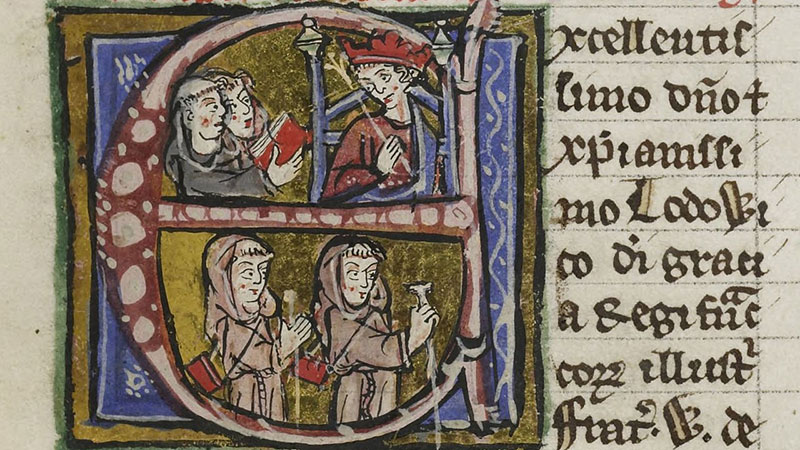 Excellentis
simo dn̄o ⁊
xp̄ianissi
mo Lodowi
co d̄i graci
a Regi fͣnc
corꝝ illustͬ
ffrat᷑. W. de